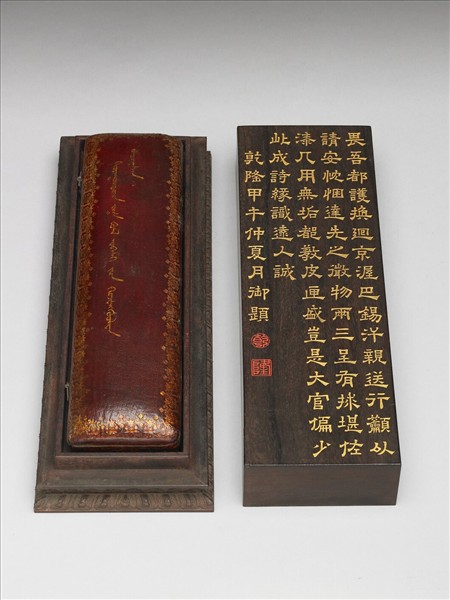 畏吾都護換迴京渥巴錫汗親送行籲以
請安忱悃達先之微物兩三呈有捄堪佐
漆几用無垢都教皮匣盛豈是大官偏少
此成詩緣識遠人誠
乾隆甲午仲夏月御題
乾
隆